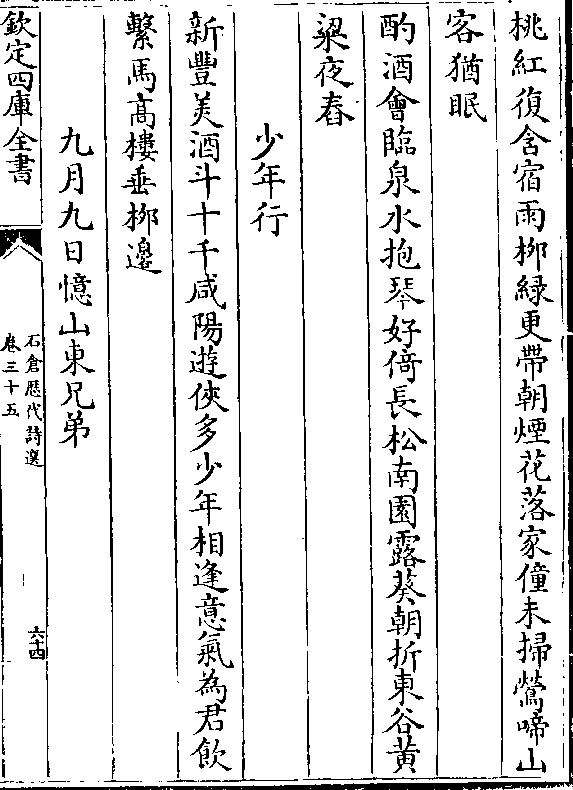 桃紅復含宿雨栁緑更帶朝煙花落家僮未掃鶯啼山
客猶眠
酌酒會臨泉水抱琴好倚長松南園露葵朝折東谷黄
粱夜舂
少年行
新豐美酒斗十千咸陽遊俠多少年相逢意氣為君飲
繫馬髙樓垂栁邊
九月九日憶山東兄弟
欽定四庫全書
石倉歴代詩選
卷三十五
六十四